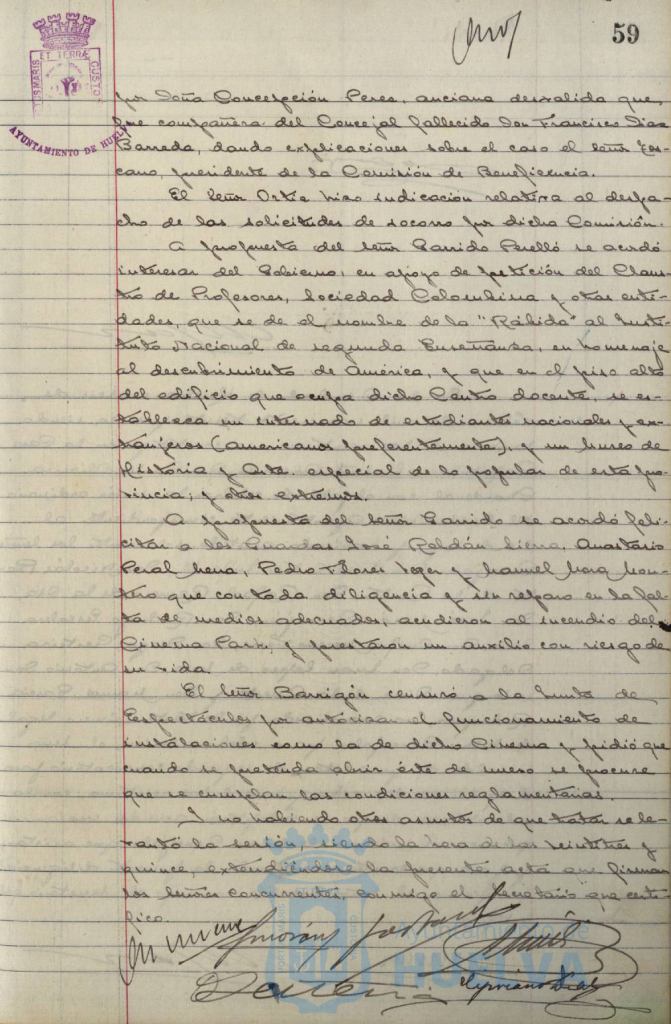 59
PORTUS MARIS ET TERRÆ CUSTODIA
AYUNTAMIENTO DE HUELVA
por Doña Concepción Perea, anciana desvalida que,
fue compañera del Concejal fallecido Don Francisco Diaz
Barreda, dando explicaciones sobre el caso el Señor Tos-
cano, presidente de la Comisión de Beneficencia.
El Señor Ortiz hizo indicación relativa al despa-
cho de las solicitudes de socorro por dicha Comisión.
A propuesta del Señor Garrido Perelló se acordó
interesar del Gobierno, en apoyo de petición del Claus-
tro de Profesores, Sociedad Colombina y otras enti-
dades, que se de el nombre de la "Rábida" al Insti-
tuto Nacional de segunda Enseñanza, en homenaje
al descubrimiento de América, y que en el piso alto
del edificio que ocupa dicho Centro docente, se es-
tablezca un internado de estudiantes nacionales y ex-
tranjeros (americanos preferentemente), y un museo de
Historia y Arte, especial de lo popular de esta pro-
vincia; y otros extremos.
A propuesta del Señor Garrido se acordó feli-
citar a los Guardas José Roldán Sierra, Anastasio
Peral Mena, Pedro Flores Veger y Manuel Mora Mon-
tero que con toda diligencia y sin reparo en la fal-
ta de medios adecuados, acudieron al incendio del
Cinema Park, y prestaron un auxilio con riesgo de
su vida.
El Señor Barrigón censuró a la Junta de
Espectáculos por autorizar el funcionamiento de
instalaciones como la de dicho Cinema y pidió que
cuando se pretenda abrir éste de nuevo se procure
que se cumplan las condiciones reglamentarias.
Y no habiendo otros asuntos de que tratar se le-
vantó la sesión, siendo la hora de las veintitres y
quince, extendiéndose la presente acta que firman
los Señores concurrentes, conmigo el Secretario que certi-
fico.
Ayuntamiento de
HUELVA
Cipriano Diaz